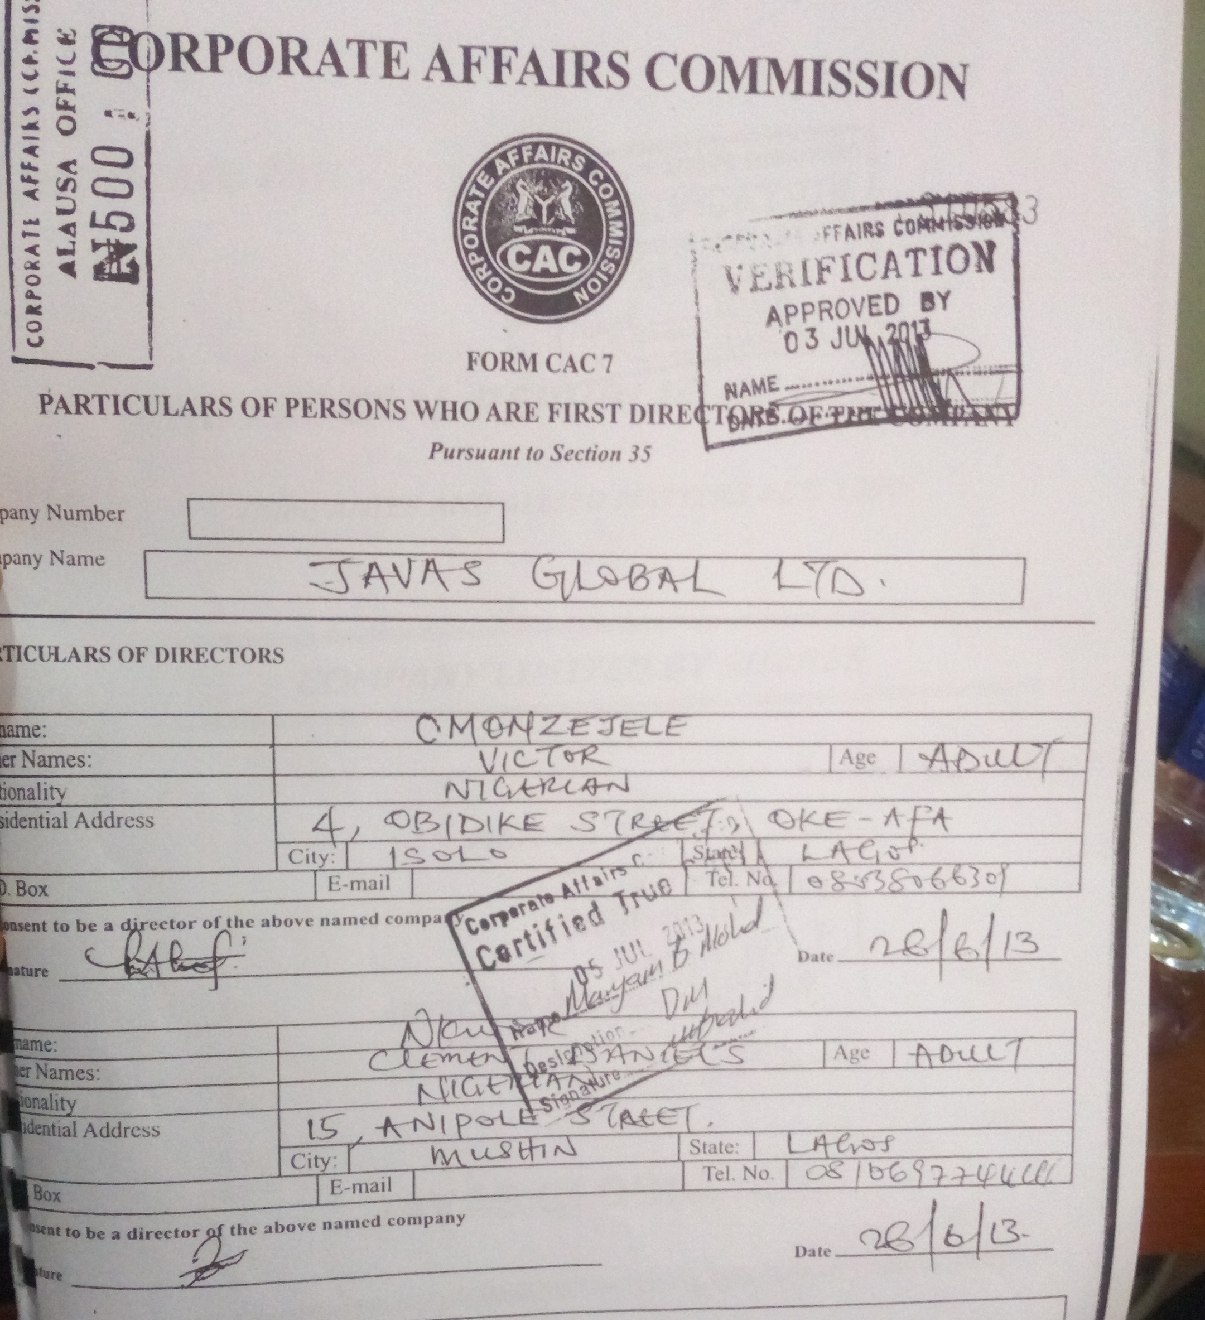 CORPORATE AFFAIRS COMMISSION
CORPORATE AFFAIRS
ALAUSA OFFICE
₦500
CORPORATE AFFAIRS COMMISSION
CAC
AFFAIRS COMMISSION
VERIFICATION
APPROVED BY
03 JUL 2013
NAME
DATE
FORM CAC 7
PARTICULARS OF PERSONS WHO ARE FIRST DIRECTORS OF THE COMPANY
Pursuant to Section 35
pany Number
pany Name JAVAS GLOBAL LTD.
TICULARS OF DIRECTORS
name: OMONZEJELE
er Names: VICTOR Age ADULT
ionality NIGERIAN
sidential Address 4, OBIDIKE STREET, OKE-AFA
City: ISOLO State: LAGOS
O. Box E-mail Tel. No. 08038066301
onsent to be a director of the above named company
nature Date 28/6/13
Corporate Affairs
Certified True
05 JUL 2013
Name Maryam B
Designation DM
Signature
name:
er Names: CLEMENT DANIELS Age ADULT
ionality NIGERIAN
idential Address 15, ANIPOLE STREET.
City: MUSHIN State: LAGOS
Box E-mail Tel. No.
nsent to be a director of the above named company
ture Date 28/6/13.